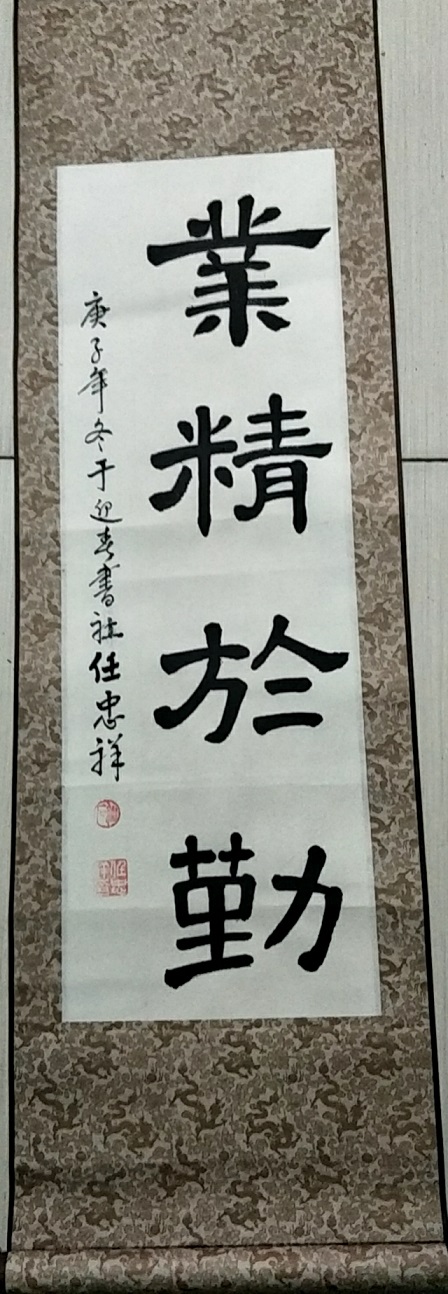 業精於勤
庚子年冬于迎春書社任忠祥